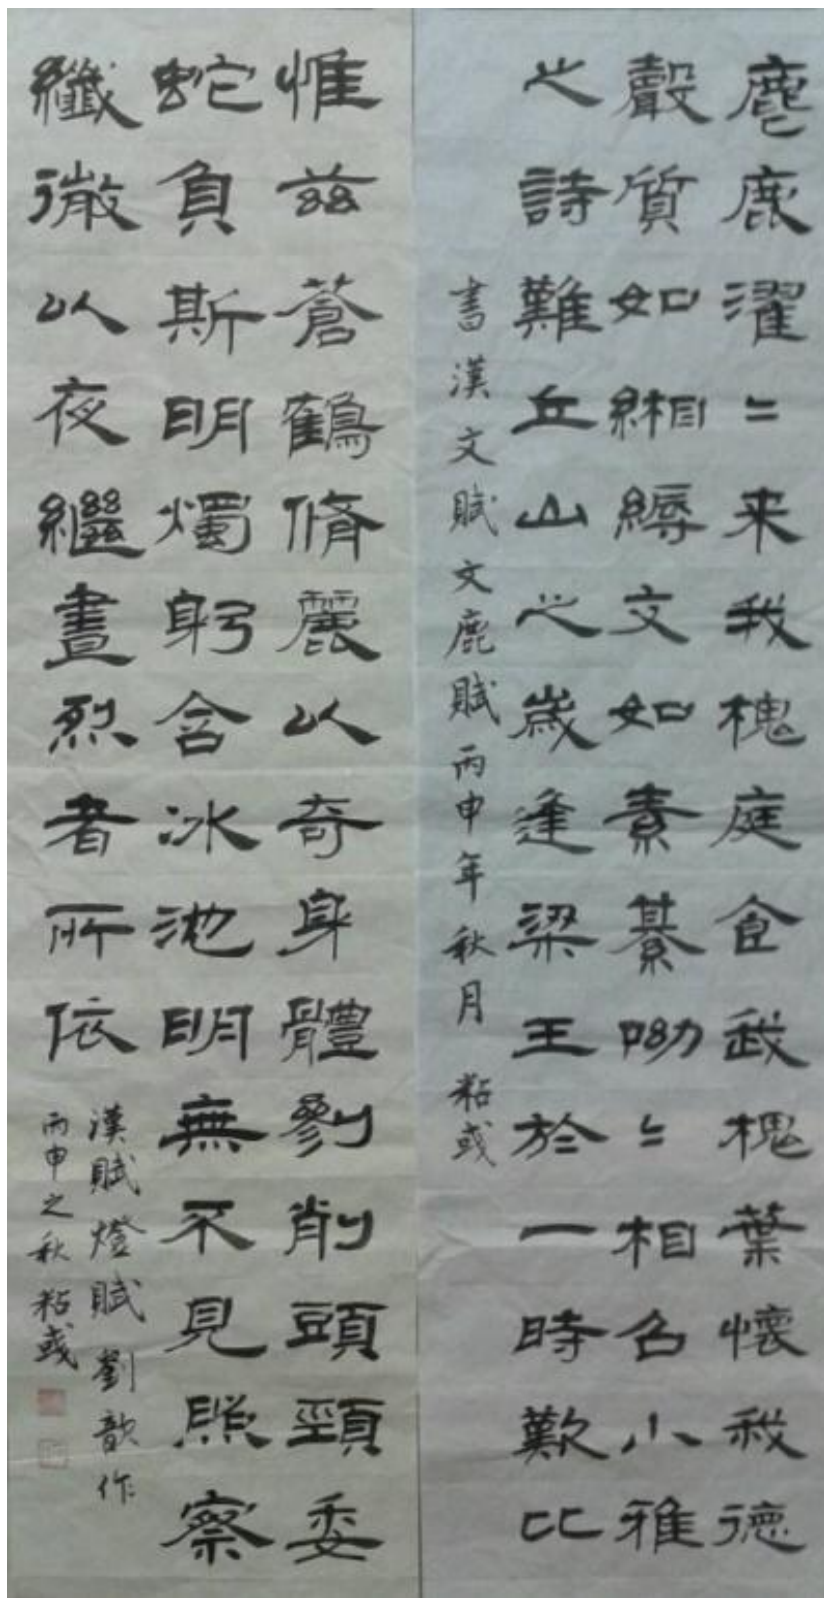 麀鹿濯〻来我槐庭食我槐葉懷我德
聲質如緗縟文如素綦呦〻相召小雅
之詩難丘山之歲逢梁王於一時歎比
書漢文賦文鹿賦丙申年秋月 粘彧
惟茲蒼鶴脩麗以奇身體剼削頭頸委
蛇負斯明燭躬含冰池明無不見照察
纖微以夜繼晝烈者所依
漢賦燈賦劉歆作
丙申之秋粘彧